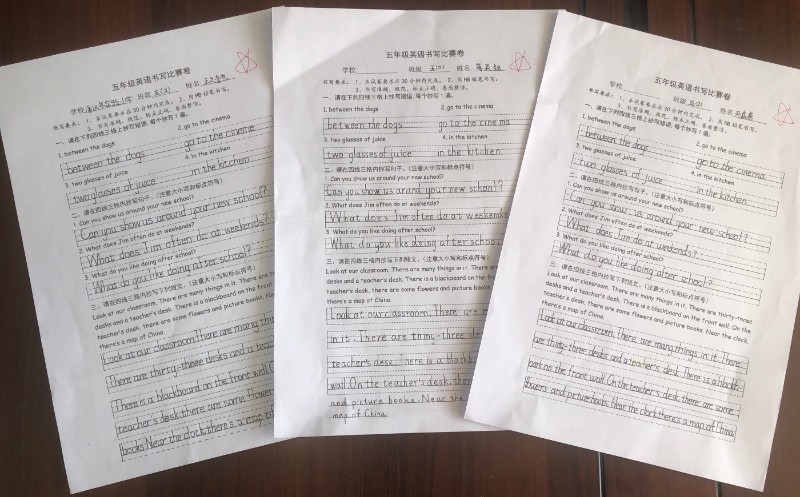 五年级英语书写比赛卷
学校 班级 五(2) 姓名
书写要求: 1、本试卷要求在30分钟内完成。 2、用2B铅笔书写。
3、书写准确、规范、标点正确、卷面整洁。
一、请在下列四线三格上抄写短语,每个抄写1遍。
1. between the dogs
2. go to the cinema
between the dogs go to the cineme
3. two glasses of juice
4. in the kitchen
two glasses of juice in the kitchen
二、请在四线三格内抄写句子。(注意大小写和标点符号)
1. Can you show us around your new school?
Can you show us around your new school?
2. What does Jim often do at weekends?
What does Jim often do at weekends?
3. What do you like doing after school?
What do you like doing after school?
三、请在四线三格内抄写下列短文。(注意大小写和标点符号)
Look at our classroom. There are many things in it. There are thirty
desks and a teacher's desk. There is a blackboard on the front wall. On
teacher's desk, there are some flowers and picture books. Near
there's a map of China.
Look at our classroom.There are many thing
There are thirty-three desks and a tea
There is a blackboard on the front wall.O
teacher's desk,there are some flower
books.Near the clock,there's a map o
五年级英语书写比赛卷
学校 班级 五(2) 姓名
书写要求: 1、本试卷要求在30分钟内完成。 2、用2B铅笔书写。
3、书写准确、规范、标点正确、卷面整洁。
一、请在下列四线三格上抄写短语,每个抄写1遍。
1. between the dogs
2. go to the cinema
between the dogs go to the cinema
3. two glasses of juice
4. in the kitchen
two glasses of juice in the kitchen
二、请在四线三格内抄写句子。(注意大小写和标点符号)
1. Can you show us around your new school?
Can you show us around your new school?
2. What does Jim often do at weekends?
What does Jim often do at weekends
3. What do you like doing after school?
What do you like doing after school
三、请在四线三格内抄写下列短文。(注意大小写和标点符号)
Look at our classroom. There are many things in it. There
desks and a teacher's desk. There is a blackboard on the
teacher's desk, there are some flowers and picture books
there's a map of China.
Look at our classroom.There are
in it. There are thirty-three de
teacher's desk.There is a blackb
wall.On the teacher's desk,then
and picture books. Near the
map of China.
五年级英语书写比赛卷
学校 班级 五(2) 姓名
书写要求: 1、本试卷要求在30分钟内完成。 2、用2B铅笔书写。
3、书写准确、规范、标点正确、卷面整洁。
一、请在下列四线三格上抄写短语,每个抄写1遍。
1. between the dogs
2. go to the cinema
between the dogs go to the cinema
3. two glasses of juice
4. in the kitchen
two glasses of juice in the kitchen
二、请在四线三格内抄写句子。(注意大小写和标点符号)
1. Can you show us around your new school?
Can you show us around your new school?
2. What does Jim often do at weekends?
What does Jim do at weekends?
3. What do you like doing after school?
What do you like doing after school?
三、请在四线三格内抄写下列短文。(注意大小写和标点符号)
Look at our classroom. There are many things in it. There are thirty-three
desks and a teacher's desk. There is a blackboard on the front wall. On the
teacher's desk, there are some flowers and picture books. Near the clock,
there's a map of China.
Look at our classroom. There are many things in it. There
are thirty-three desks and a teacher's desk. There is a black-
board on the front wall. On the teacher's desk, there are some
flowers and picture books. Near the clock, there's a map of China.